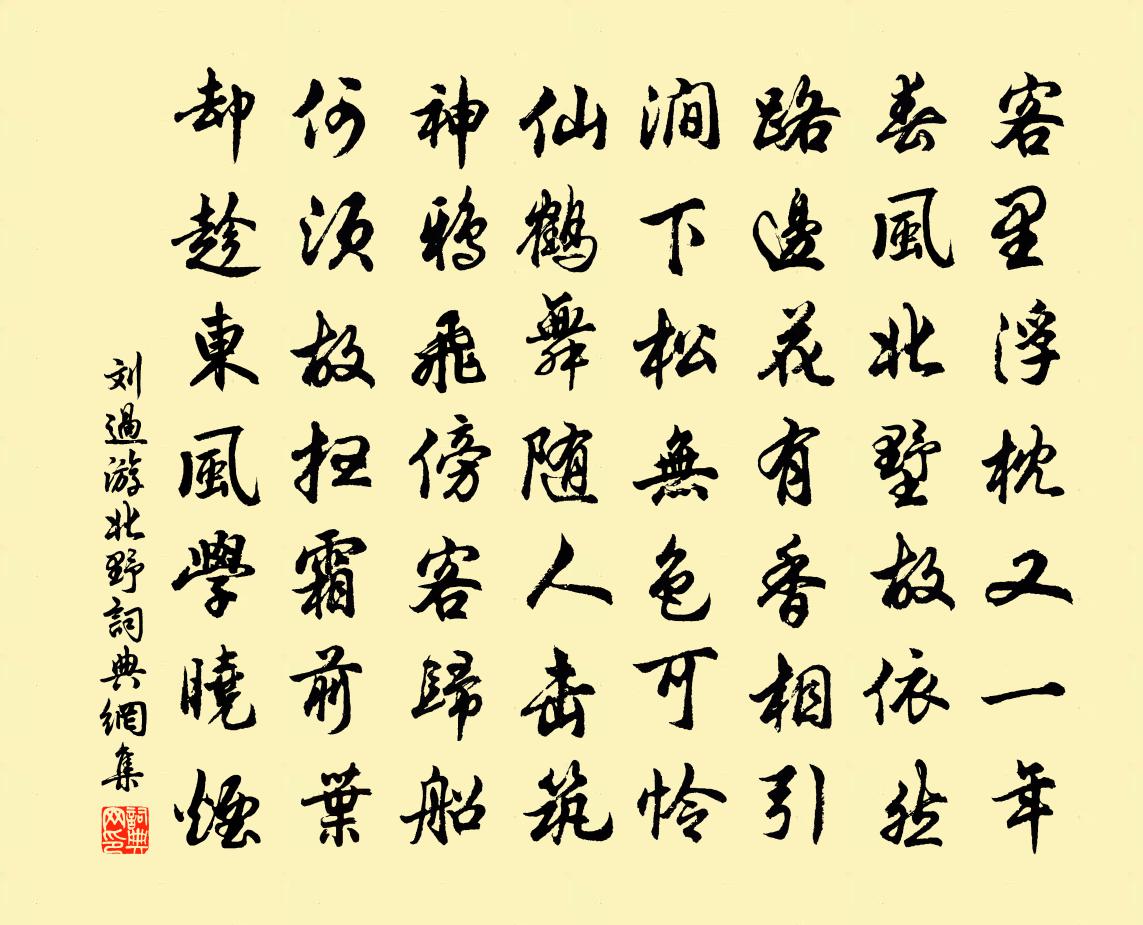 客里浮枕又一年
春風北墅故依然
路邊花有香相引
澗下松無色可怜
仙鶴舞随人击筑
神鴉飛傍客歸船
何須故扫霜前葉
却趁東風學曉煙
刘過游北野詞典網集
詞典网印